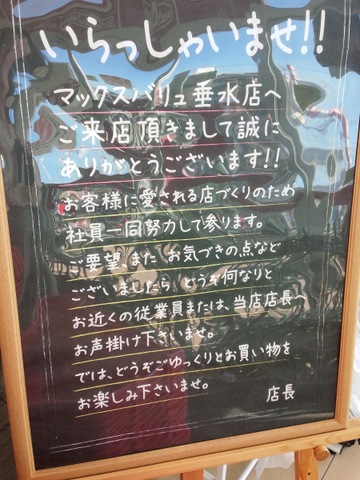 いらっしゃいませ!!
マックスバリュ垂水店へ
ご来店頂きまして誠に
ありがとうございます!!
お客様に愛される店づくりのため
社員一同努力して参ります。
ご要望、また お気づきの点など
ございましたら、どうぞ何なりと
お近くの従業員または、当店店長へ
お声掛け下さいませ。
では、どうぞごゆっくりとお買い物を
お楽しみ下さいませ。
店長